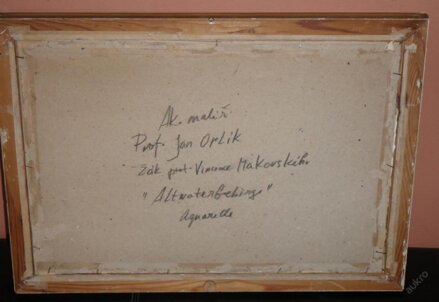 Ak. malíř
Prof. Jan Orlik
žák prof. Vincence Makovského
"Altvatergebirge"
Aquarelle
aukro